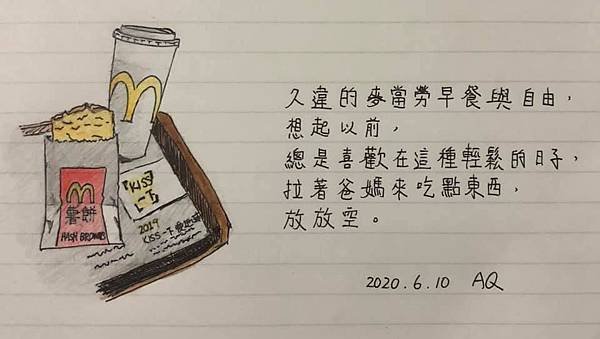 久違的麥當勞早餐與自由，
想起以前，
總是喜歡在這種輕鬆的日子，
拉著爸媽來吃點東西，
放放空。
2020.6.10 AQ
M
M
薯餅
HASH BROWNS
KISS
一下
2019
KISS一下